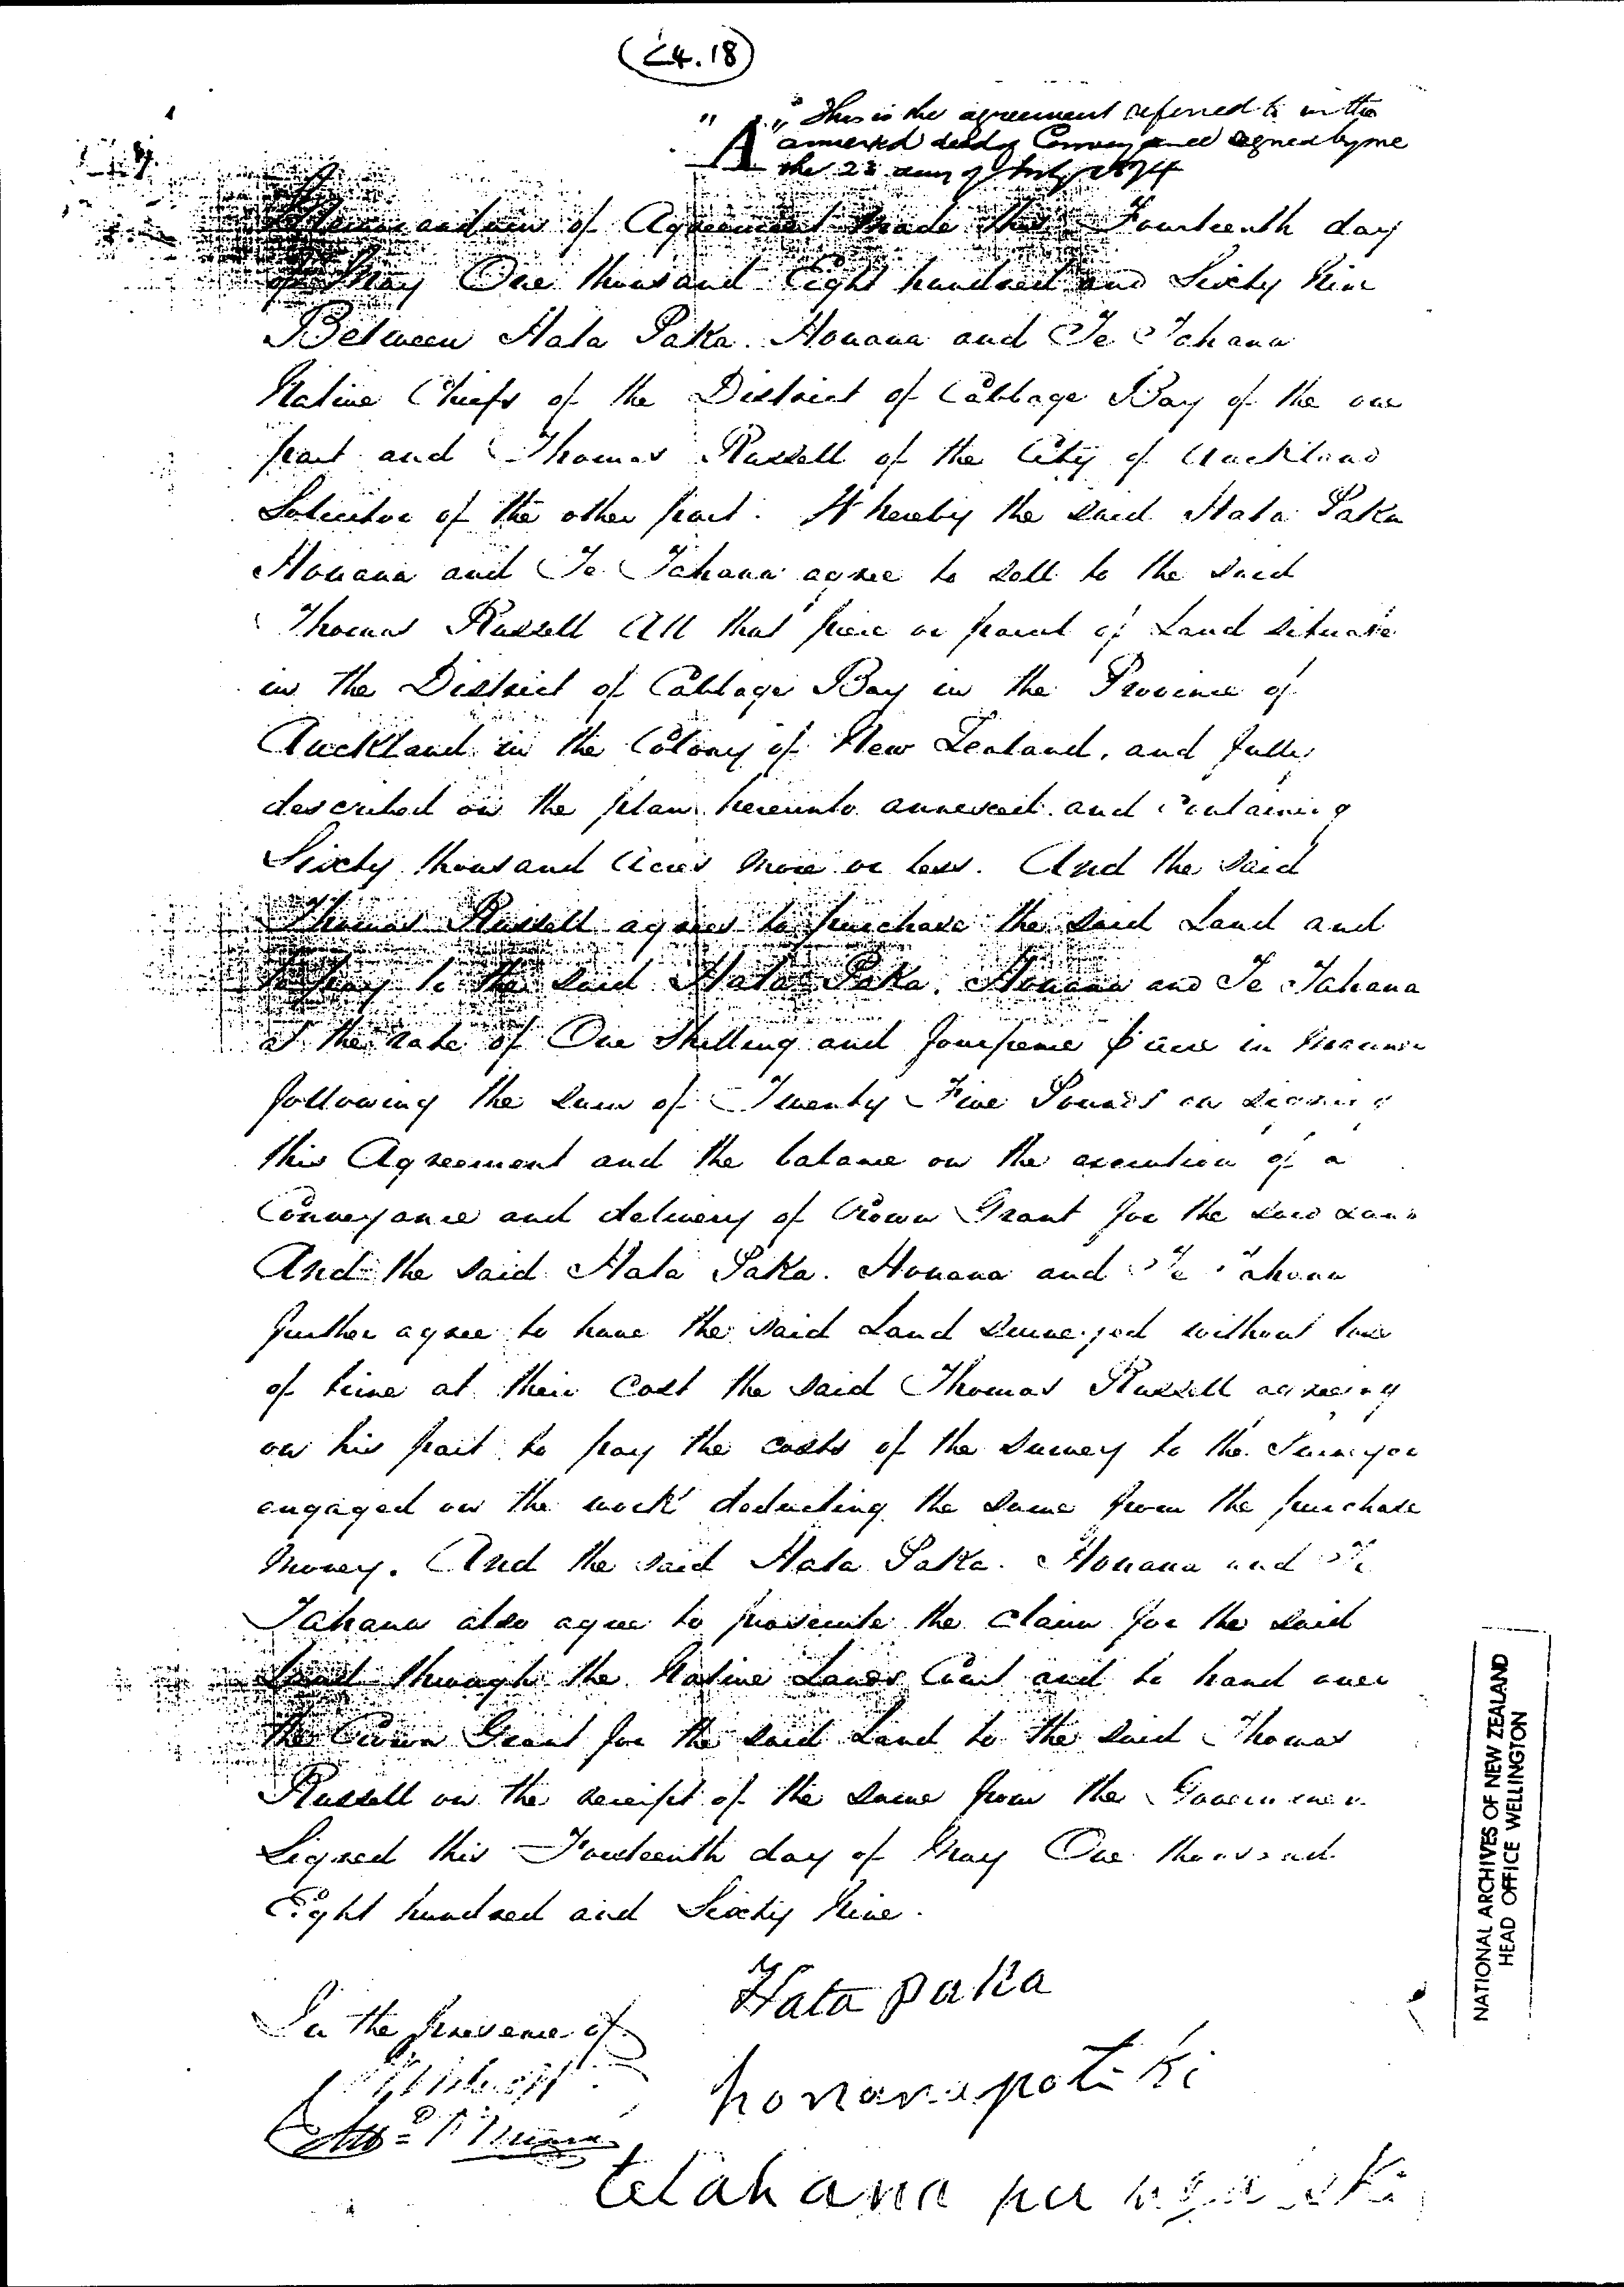 (C4.18)
"A" This is the agreement referred to in the
annexed deed of Conveyance signed by me
the 23 day of July 1874
Memorandum of Agreement made this Fourteenth day
of May One thousand Eight hundred and Sixty Nine
Between Hata Paka. Honana and Te Tahana
Native Chiefs of the District of Cabbage Bay of the one
part and Thomas Russell of the City of Auckland
Solicitor of the other part. Whereby the said Hata Paka
Honana and Te Tahana agree to sell to the said
Thomas Russell All that piece or parcel of Land situate
in the District of Cabbage Bay in the Province of
Auckland in the Colony of New Zealand, and fully
described on the plan hereunto annexed and containing
Sixty thousand Acres more or less. And the said
Thomas Russell agrees to purchase the said Land and
to pay to the said Hata Paka. Honana and Te Tahana
at the rate of One Shilling and fourpence P acre in manner
following the sum of Twenty Five Pounds on signing
this Agreement and the balance on the execution of a
Conveyance and delivery of Crown Grant for the said Land
And the said Hata Paka. Honana and Te Tahana
further agree to have the said Land surveyed without loss
of time at their cost the said Thomas Russell agreeing
on his part to pay the costs of the survey to the Surveyor
engaged on the work deducting the same from the purchase
money. And the said Hata Paka. Honana and Te
Tahana also agree to prosecute the claim for the said
Land through the Native Lands Court and to hand over
the Crown Grant for the said Land to the said Thomas
Russell on the receipt of the same from the Government
Signed this Fourteenth day of May One thousand
Eight hundred and Sixty Nine.
Hata paka
In the presence of
honana potiki
tetahana pu
NATIONAL ARCHIVES OF NEW ZEALAND
HEAD OFFICE WELLINGTON